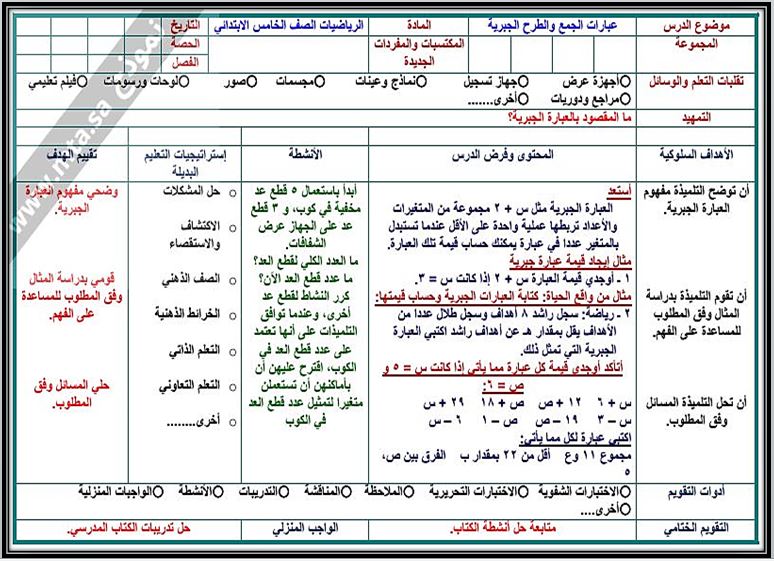 موضوع الدرس عبارات الجمع والطرح الجبرية المادة الرياضيات الصف الخامس الابتدائي التاريخ
المجموعة المكتسبات والمفردات الجديدة الحصة
الفصل
تقليات التعلم والوسائل أجهزة عرض جهاز تسجيل نماذج وعينات مجسمات صور لوحات ورسومات فيلم تعليمي
مراجع ودوريات أخرى.......
التمهيد ما المقصود بالعبارة الجبرية؟
الأهداف السلوكية المحتوى وفرض الدرس الأنشطة إستراتيجيات التعليم البديلة تقييم الهدف
أن توضح التلميذة مفهوم
العبارة الجبرية.
أن تقوم التلميذة بدراسة
المثال وفق المطلوب
للمساعدة على الفهم.
أن تحل التلميذة المسائل
وفق المطلوب.
أستعد
العبارة الجبرية مثل س + ٢ مجموعة من المتغيرات
والأعداد تربطها عملية واحدة على الأقل عندما تستبدل
بالمتغير عددا في عبارة يمكنك حساب قيمة تلك العبارة.
مثال إيجاد قيمة عبارة جبرية
١ - أوجدي قيمة العبارة س + ٢ إذا كانت س = ٣.
مثال من واقع الحياة: كتابة العبارات الجبرية وحساب قيمتها:
٢ - رياضة: سجل راشد ٨ أهداف وسجل طلال عددا من
الأهداف يقل بمقدار هـ عن أهداف راشد اكتبي العبارة
الجبرية التي تمثل ذلك.
أتأكد أوجدي قيمة كل عبارة مما يأتي إذا كانت س = ٥ و
ص = ٦:
س + ٦ ١٢ + ص ص + ١٨ ٢٩ + س
س – ٣ ١٩ – ص ص – ١ ٦ – س
اكتبي عبارة لكل مما يأتي:
مجموع ١١ وع أقل من ٢٢ بمقدار ب الفرق بين ص،
٥
أبدأ باستعمال ٥ قطع عد
مخفية في كوب، و ٣ قطع
عد على الجهاز عرض
الشفافات.
ما العدد الكلي لقطع العد؟
ما عدد قطع العد الآن؟
كرر النشاط لقطع عد
أخرى، وعندما توافق
التلميذات على أنها تعتمد
على عدد قطع العد في
الكوب، اقترح عليهن أن
بأماكنهن أن تستعملن
متغيرا لتمثيل عدد قطع العد
في الكوب
حل المشكلات
الاكتشاف
والاستقصاء
الصف الذهني
الخرائط الذهنية
التعلم الذاتي
التعلم التعاوني
أخرى........
وضحي مفهوم العبارة
الجبرية.
قومي بدراسة المثال
وفق المطلوب للمساعدة
على الفهم.
حلي المسائل وفق
المطلوب.
أدوات التقويم الاختبارات الشفوية الاختبارات التحريرية الملاحظة المناقشة التدريبات الأنشطة الواجبات المنزلية
أخرى....
التقويم الختامي متابعة حل أنشطة الكتاب. الواجب المنزلي حل تدريبات الكتاب المدرسي.
نموذج www.mta.sa